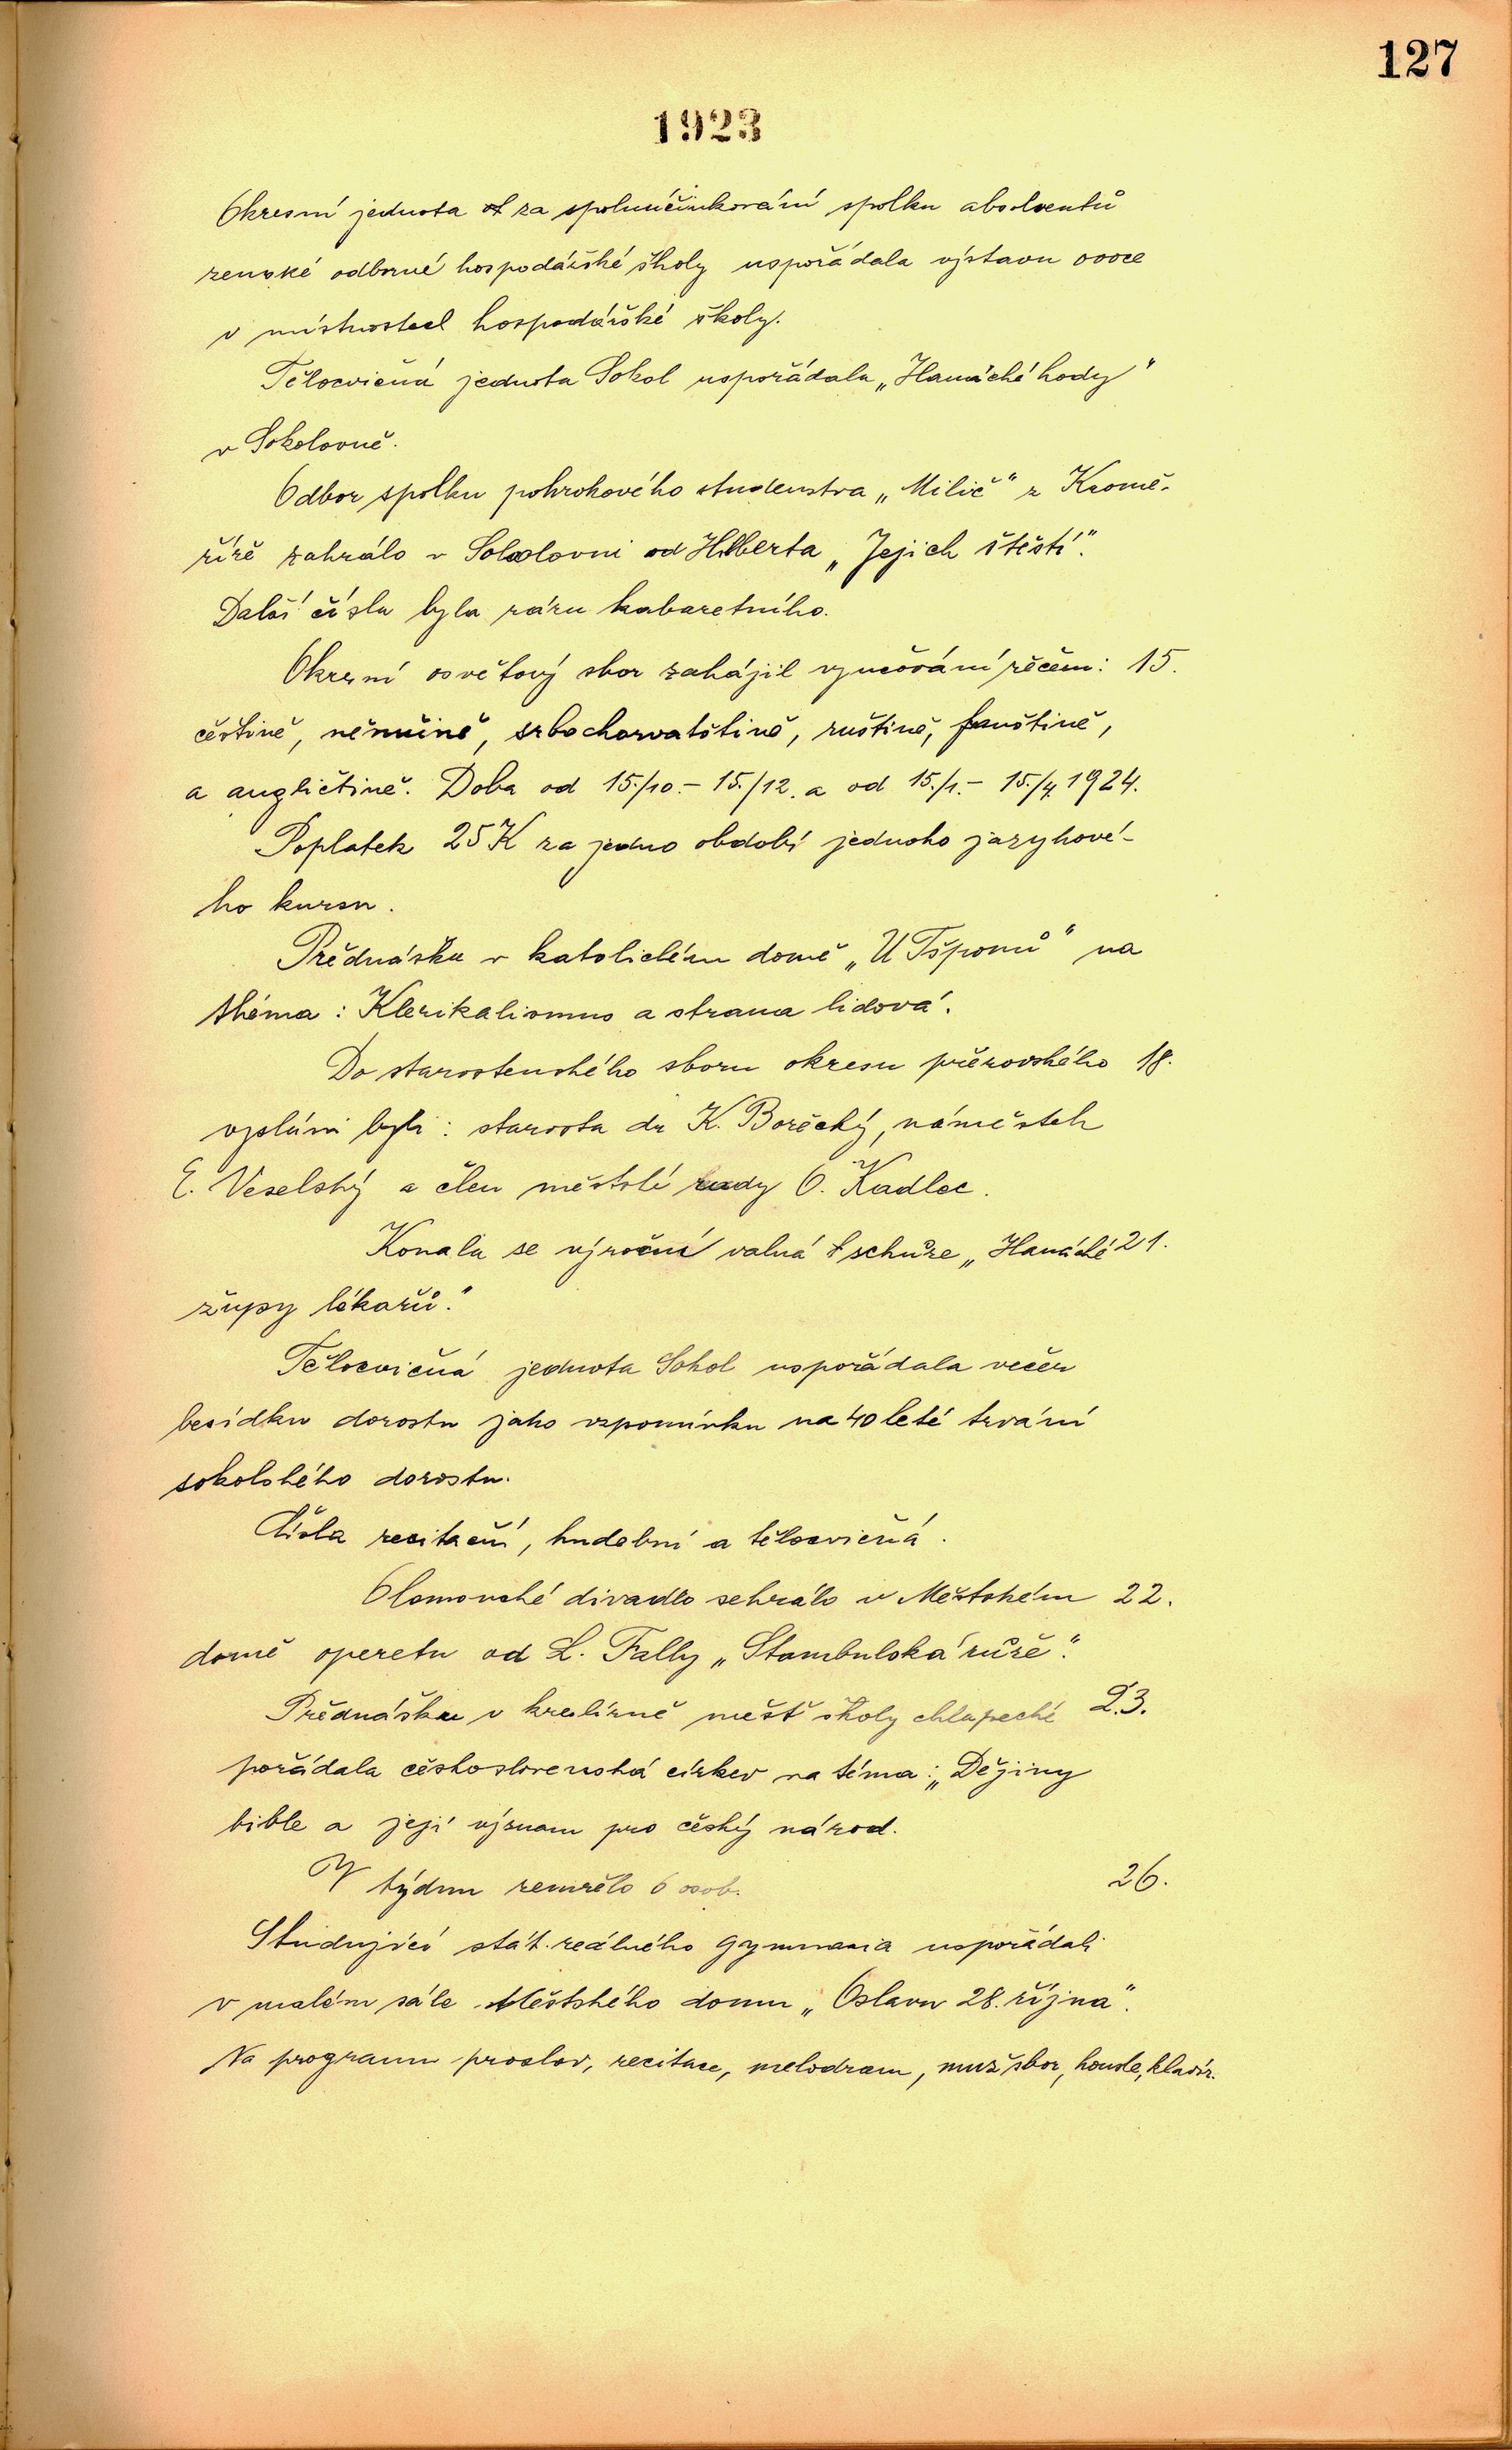 127
1923
Okresní jednota za spoluúčinkování spolku absolventů
zemské odborné hospodářské školy uspořádala výstavu ovoce
v místnostech hospodářské školy.
Tělocvičná jednota Sokol uspořádala „Hanácké hody"
v Sokolovně.
Odbor spolku pokrokového studenstva „Milíč" z Kromě-
říže zahrálo v Sokolovni od Hilberta „Jejich štěstí".
Další čísla byla rázu kabaretního.
Okresní osvětový sbor zahájil vyučování řečem: 15.
češtině, němčině, srbochorvatštině, ruštině, franštině,
a angličtině. Doba od 15./10.- 15./12. a od 15./1.- 15./4. 1924.
Poplatek 25 K za jedno období jednoho jazykové-
ho kursu.
Přednáška v katolickém domě „U Tšponů" na
théma: Klerikalismus a strana lidová.
Do starostenského sboru okresu přerovského 18.
vysláni byli: starosta dr K. Borěcký, náměstek
E. Veselský a člen městské rady O. Kadlec.
Konala se výroční valná schůze „Hanácké 21.
župy lékařů."
Tělocvičná jednota Sokol uspořádala večer
besídku dorostu jako vzpomínku na 40 leté trvání
sokolského dorostu.
Čísla recitační, hudební a tělocvičná.
Olomoucké divadlo sehrálo v Městském 22.
domě operetu od L. Fally „Stambulská růže".
Přednášku v kreslírně mešť školy chlapecké 23.
pořádala československá církev na téma: „Dějiny
bible a její význam pro český národ.
V týdnu zemřelo 6 osob. 26.
Studující stát. reálného gymnasia uspořádali
v malém sále Městského domu „Oslavu 28. října".
Na programu proslov, recitace, melodram, muž sbor, housle, klavír.